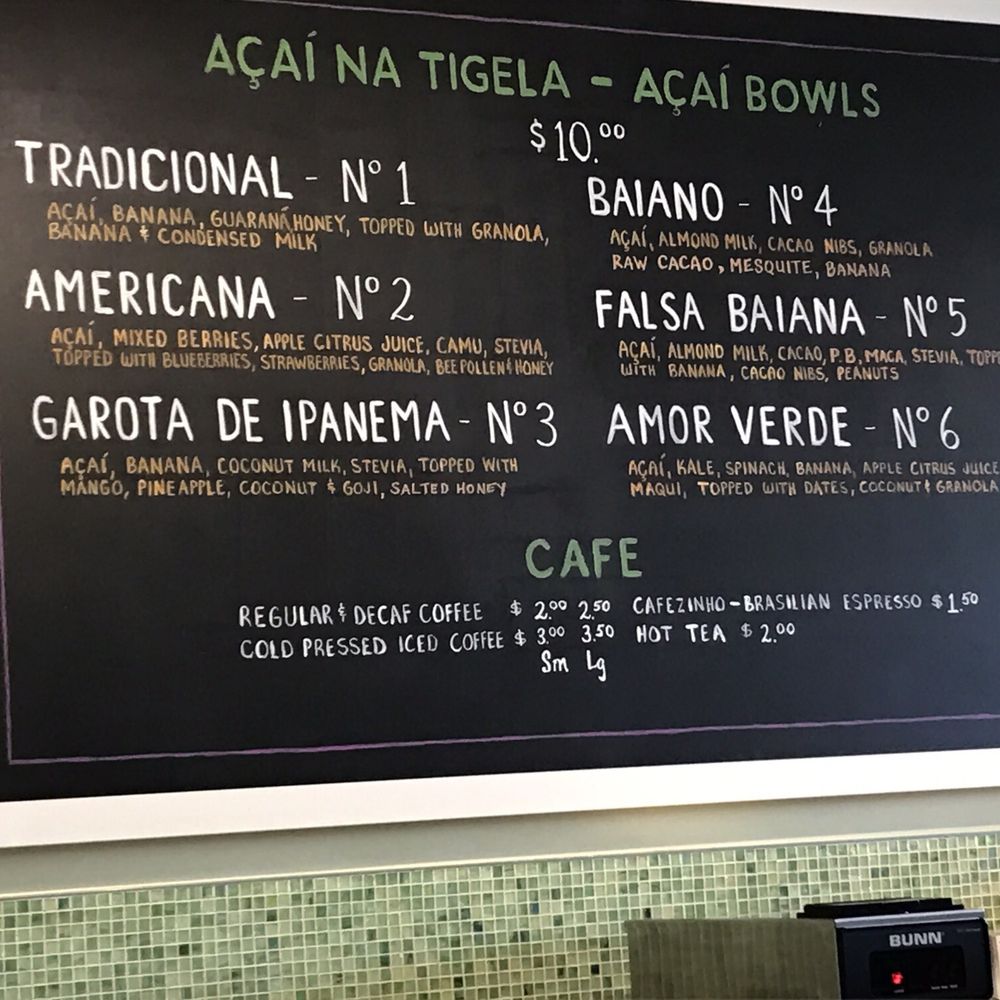 AÇAÍ NA TIGELA - AÇAÍ BOWLS
$10.00
TRADICIONAL - Nº 1
AÇAÍ, BANANA, GUARANÁ, HONEY, TOPPED WITH GRANOLA,
BANANA & CONDENSED MILK
AMERICANA - Nº 2
AÇAÍ, MIXED BERRIES, APPLE CITRUS JUICE, CAMU, STEVIA,
TOPPED WITH BLUEBERRIES, STRAWBERRIES, GRANOLA, BEE POLLEN & HONEY
GAROTA DE IPANEMA - Nº 3
AÇAÍ, BANANA, COCONUT MILK, STEVIA, TOPPED WITH
MANGO, PINEAPPLE, COCONUT & GOJI, SALTED HONEY
BAIANO - Nº 4
AÇAÍ, ALMOND MILK, CACAO NIBS, GRANOLA
RAW CACAO, MESQUITE, BANANA
FALSA BAIANA - Nº 5
AÇAÍ, ALMOND MILK, CACAO, P.B, MACA, STEVIA, TOPP
WITH BANANA, CACAO NIBS, PEANUTS
AMOR VERDE - Nº 6
AÇAÍ, KALE, SPINACH, BANANA, APPLE CITRUS JUICE
MAQUI, TOPPED WITH DATES, COCONUT & GRANOLA
CAFE
REGULAR & DECAF COFFEE $ 2.00 2.50
COLD PRESSED ICED COFFEE $ 3.00 3.50
Sm Lg
CAFEZINHO - BRASILIAN ESPRESSO $ 1.50
HOT TEA $ 2.00
BUNN